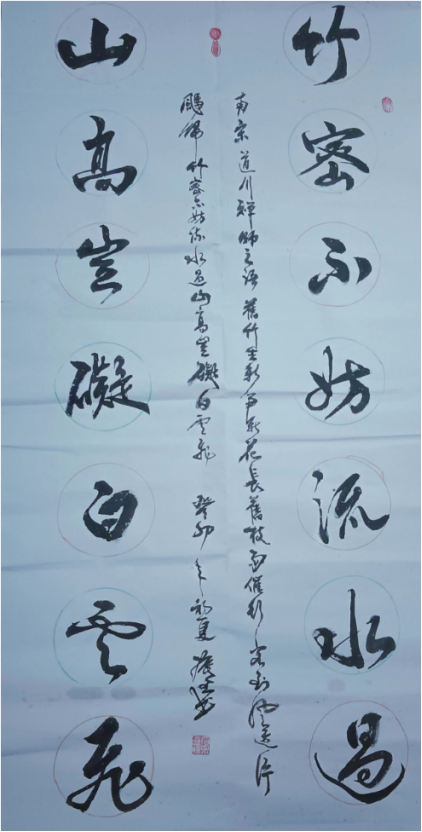 竹密不妨流水過
南宋道川禪師之語舊竹生新笋新花長舊枝雨催行客到風送片
颿歸竹密不妨流水過山高豈礙白雲飛 癸卯年初夏
山高豈礙白雲飛